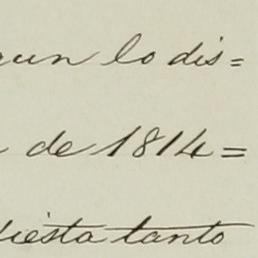 gun lo dis=
de 1814=
fiesta tanto